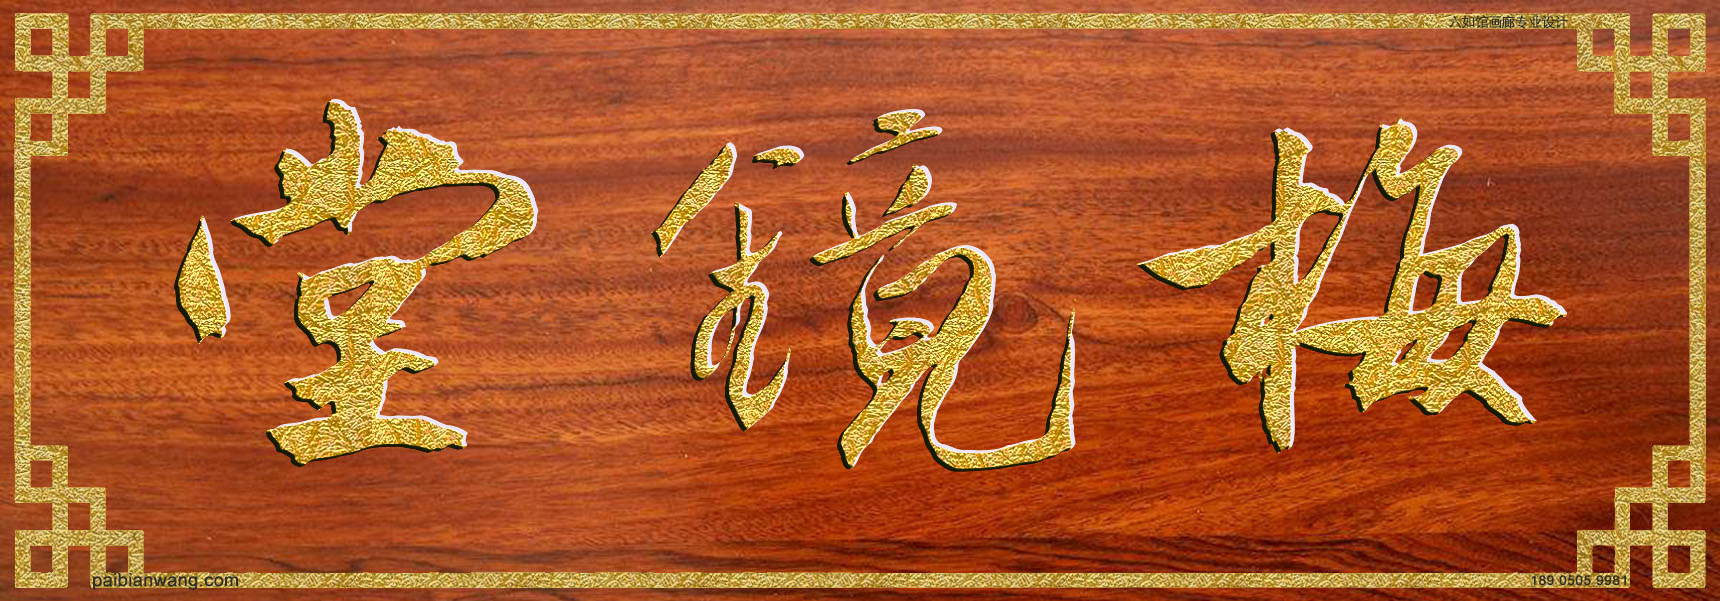 六如馆画廊专业设计
梅镜堂
paibianwang.com
189 0505 9981